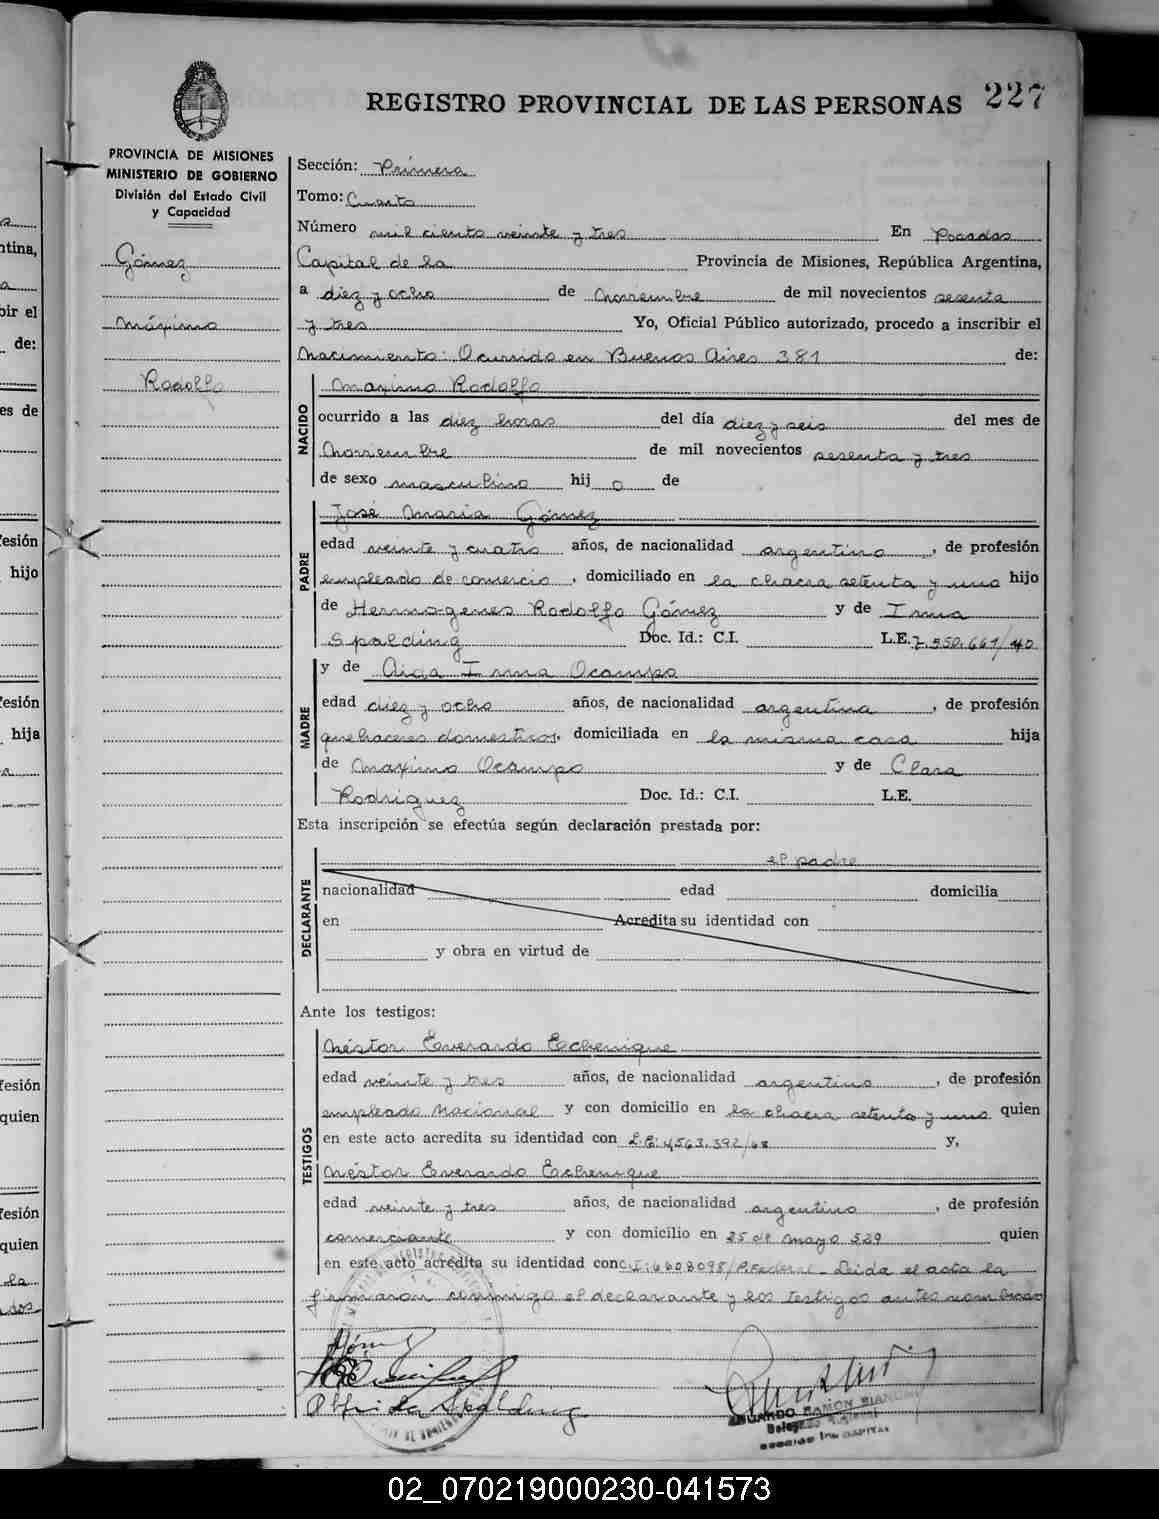 REGISTRO PROVINCIAL DE LAS PERSONAS 227
PROVINCIA DE MISIONES
MINISTERIO DE GOBIERNO
División del Estado Civil
y Capacidad
Gómez
Máximo
Rodolfo
Sección: Primera
Tomo: Cuarto
Número mil ciento veinte y tres En Posadas
Capital de la Provincia de Misiones, República Argentina,
a diez y ocho de Noviembre de mil novecientos sesenta
y tres Yo, Oficial Público autorizado, procedo a inscribir el
Nacimiento: Ocurrido en Buenos Aires 381 de:
NACIDO
Maximo Rodolfo
ocurrido a las diez horas del día diez y seis del mes de
Noviembre de mil novecientos sesenta y tres
de sexo masculino hij o de
PADRE
José Maria Gómez
edad veinte y cuatro años, de nacionalidad argentino, de profesión
empleado de comercio, domiciliado en la chacra setenta y uno hijo
de Hermogenes Rodolfo Gómez y de Irma
Spalding Doc. Id.: C.I. L.E. 7.550.661/40
MADRE
y de Aida Irma Ocampo
edad diez y ocho años, de nacionalidad argentina, de profesión
quehaceres domesticos, domiciliada en la misma casa hija
de Maximo Ocampo y de Clara
Rodriguez Doc. Id.: C.I. L.E.
Esta inscripción se efectúa según declaración prestada por:
DECLARANTE
el padre
nacionalidad edad domicilia
en Acredita su identidad con
y obra en virtud de
Ante los testigos:
TESTIGOS
Néstor Everardo Echenique
edad veinte y tres años, de nacionalidad argentino, de profesión
empleado Nacional y con domicilio en la chacra setenta y uno quien
en este acto acredita su identidad con L.E: 4563.392/68 y,
Néstor Everardo Echenique
edad veinte y tres años, de nacionalidad argentino, de profesión
comerciante y con domicilio en 25 de mayo 529 quien
en este acto acredita su identidad con C.I: 6608098/P.Federal - Leida el acta la
firmaron conmigo el declarante y los testigos antes nombrados
Gómez
Alfrida Spalding
EDUARDO RAMON BIANCHI
02_070219000230-041573